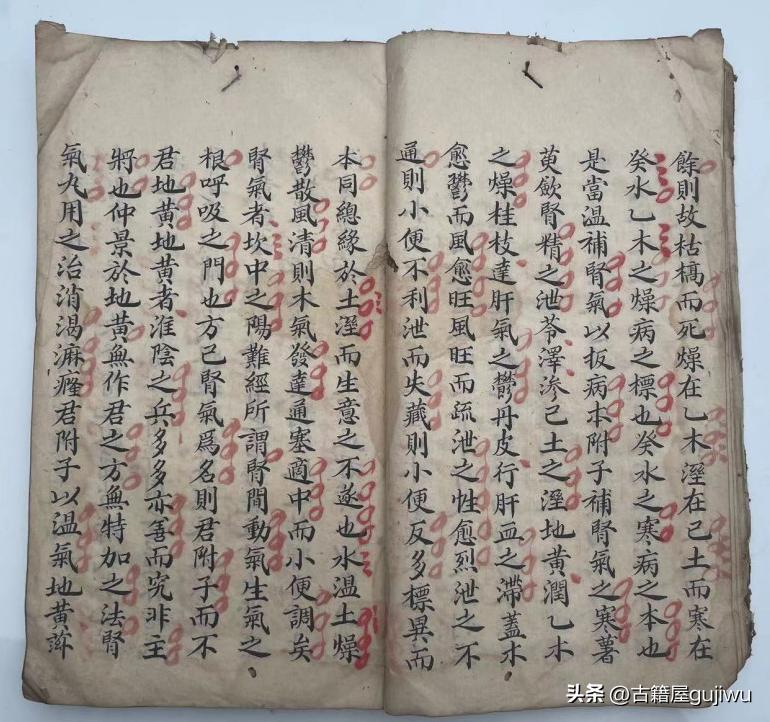 餘則故枯槁而死燥在乙木溼在己土而寒在
癸水乙木之燥病之標也癸水之寒病之本也
是當温補腎氣以扳病本附子補腎氣之寒薯
萸歛腎精之泄苓澤渗己土之溼地黄潤乙木
之燥桂枝達肝氣之鬱丹皮行肝血之滯蓋木
愈鬱而風愈旺風旺而疏泄之性愈烈泄之不
通則小便不利泄而失藏則小便反多標異而
本同總緣於土溼而生意之不遂也水温土燥
鬱散風清則木氣發達通塞適中而小便調矣
腎氣者坎中之陽難經所謂腎間動氣生氣之
根呼吸之門也方已腎氣爲名則君附子而不
君地黄地黄者淮陰之兵多多亦善而究非主
將也仲景於地黄無作君之方無特加之法腎
氣丸用之治消渴淋癃君附子以温氣地黄
头条 @古籍屋gujiwu